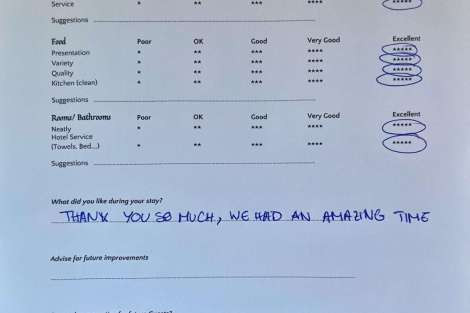 Service * ** *** **** *****
Suggestions
Food Poor OK Good Very Good Excellent
Presentation * ** *** **** *****
Variety * ** *** **** *****
Quality * ** *** **** *****
Kitchen (clean) * ** *** **** *****
Suggestions
Rooms/ Bathrooms Poor OK Good Very Good Excellent
Neatly * ** *** **** *****
Hotel Service
(Towels, Bed...) * ** *** **** *****
Suggestions
What did you like during your stay?
THANK YOU SO MUCH, WE HAD AN AMAZING TIME
Advise for future improvements